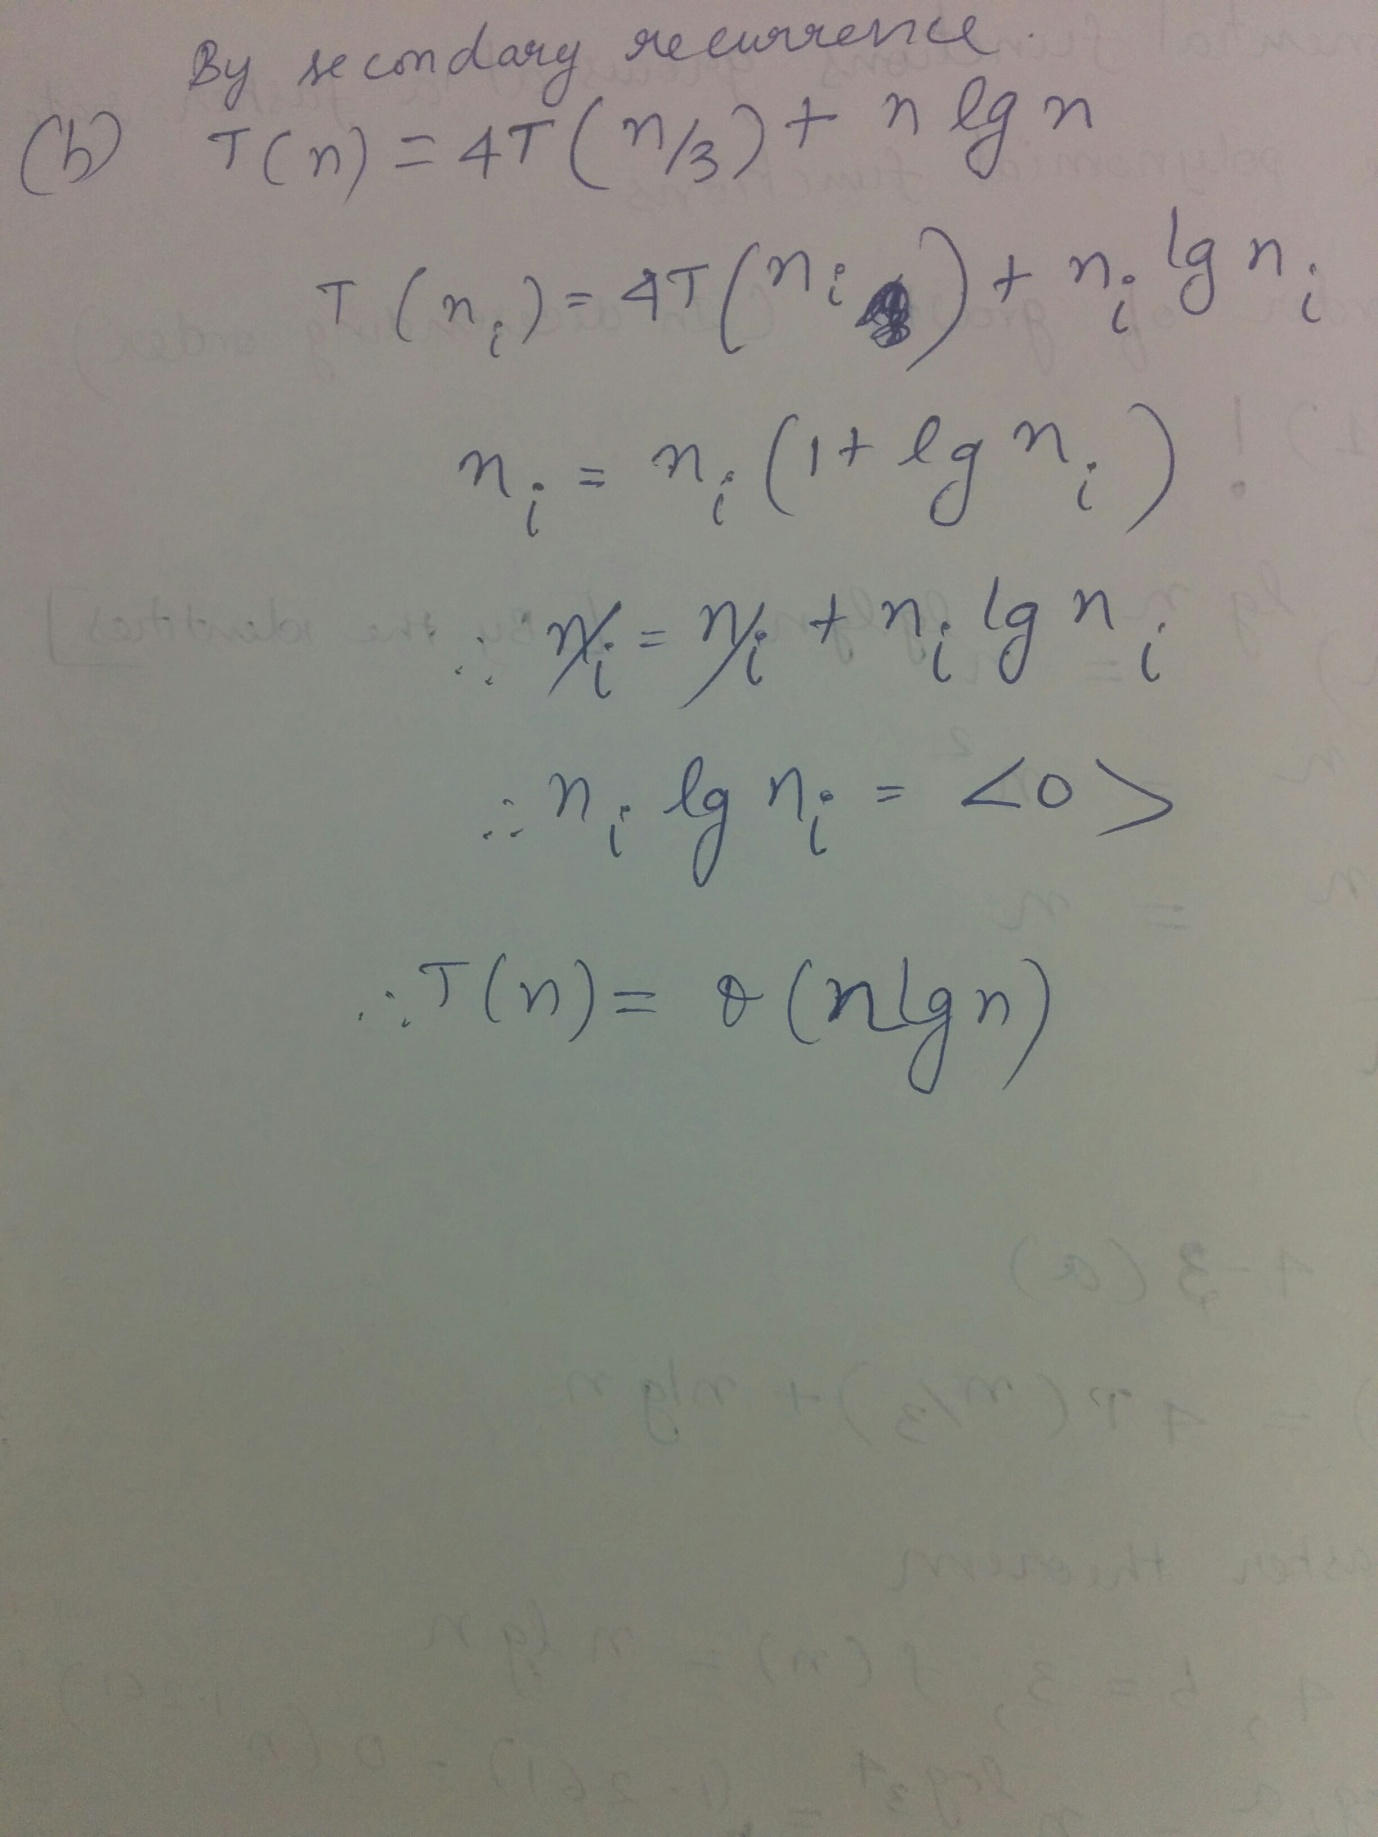 By secondary recurrence.
(b) T(n) = 4T(n/3) + n lg n
T(n_i) = 4T(n_i) + n_i lg n_i
n_i = n_i (1 + lg n_i)
∴ n_i = n_i + n_i lg n_i
∴ n_i lg n_i = <0>
∴ T(n) = θ(n lg n)